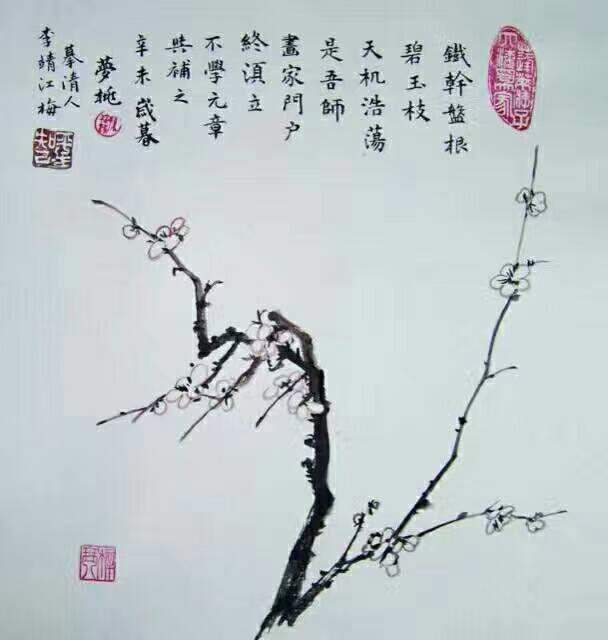 鐵幹盤根
碧玉枝
天机浩蕩
是吾師
畫家門户
終須立
不學元章
與補之
辛未歲暮
夢桃
摹清人
李靖江梅